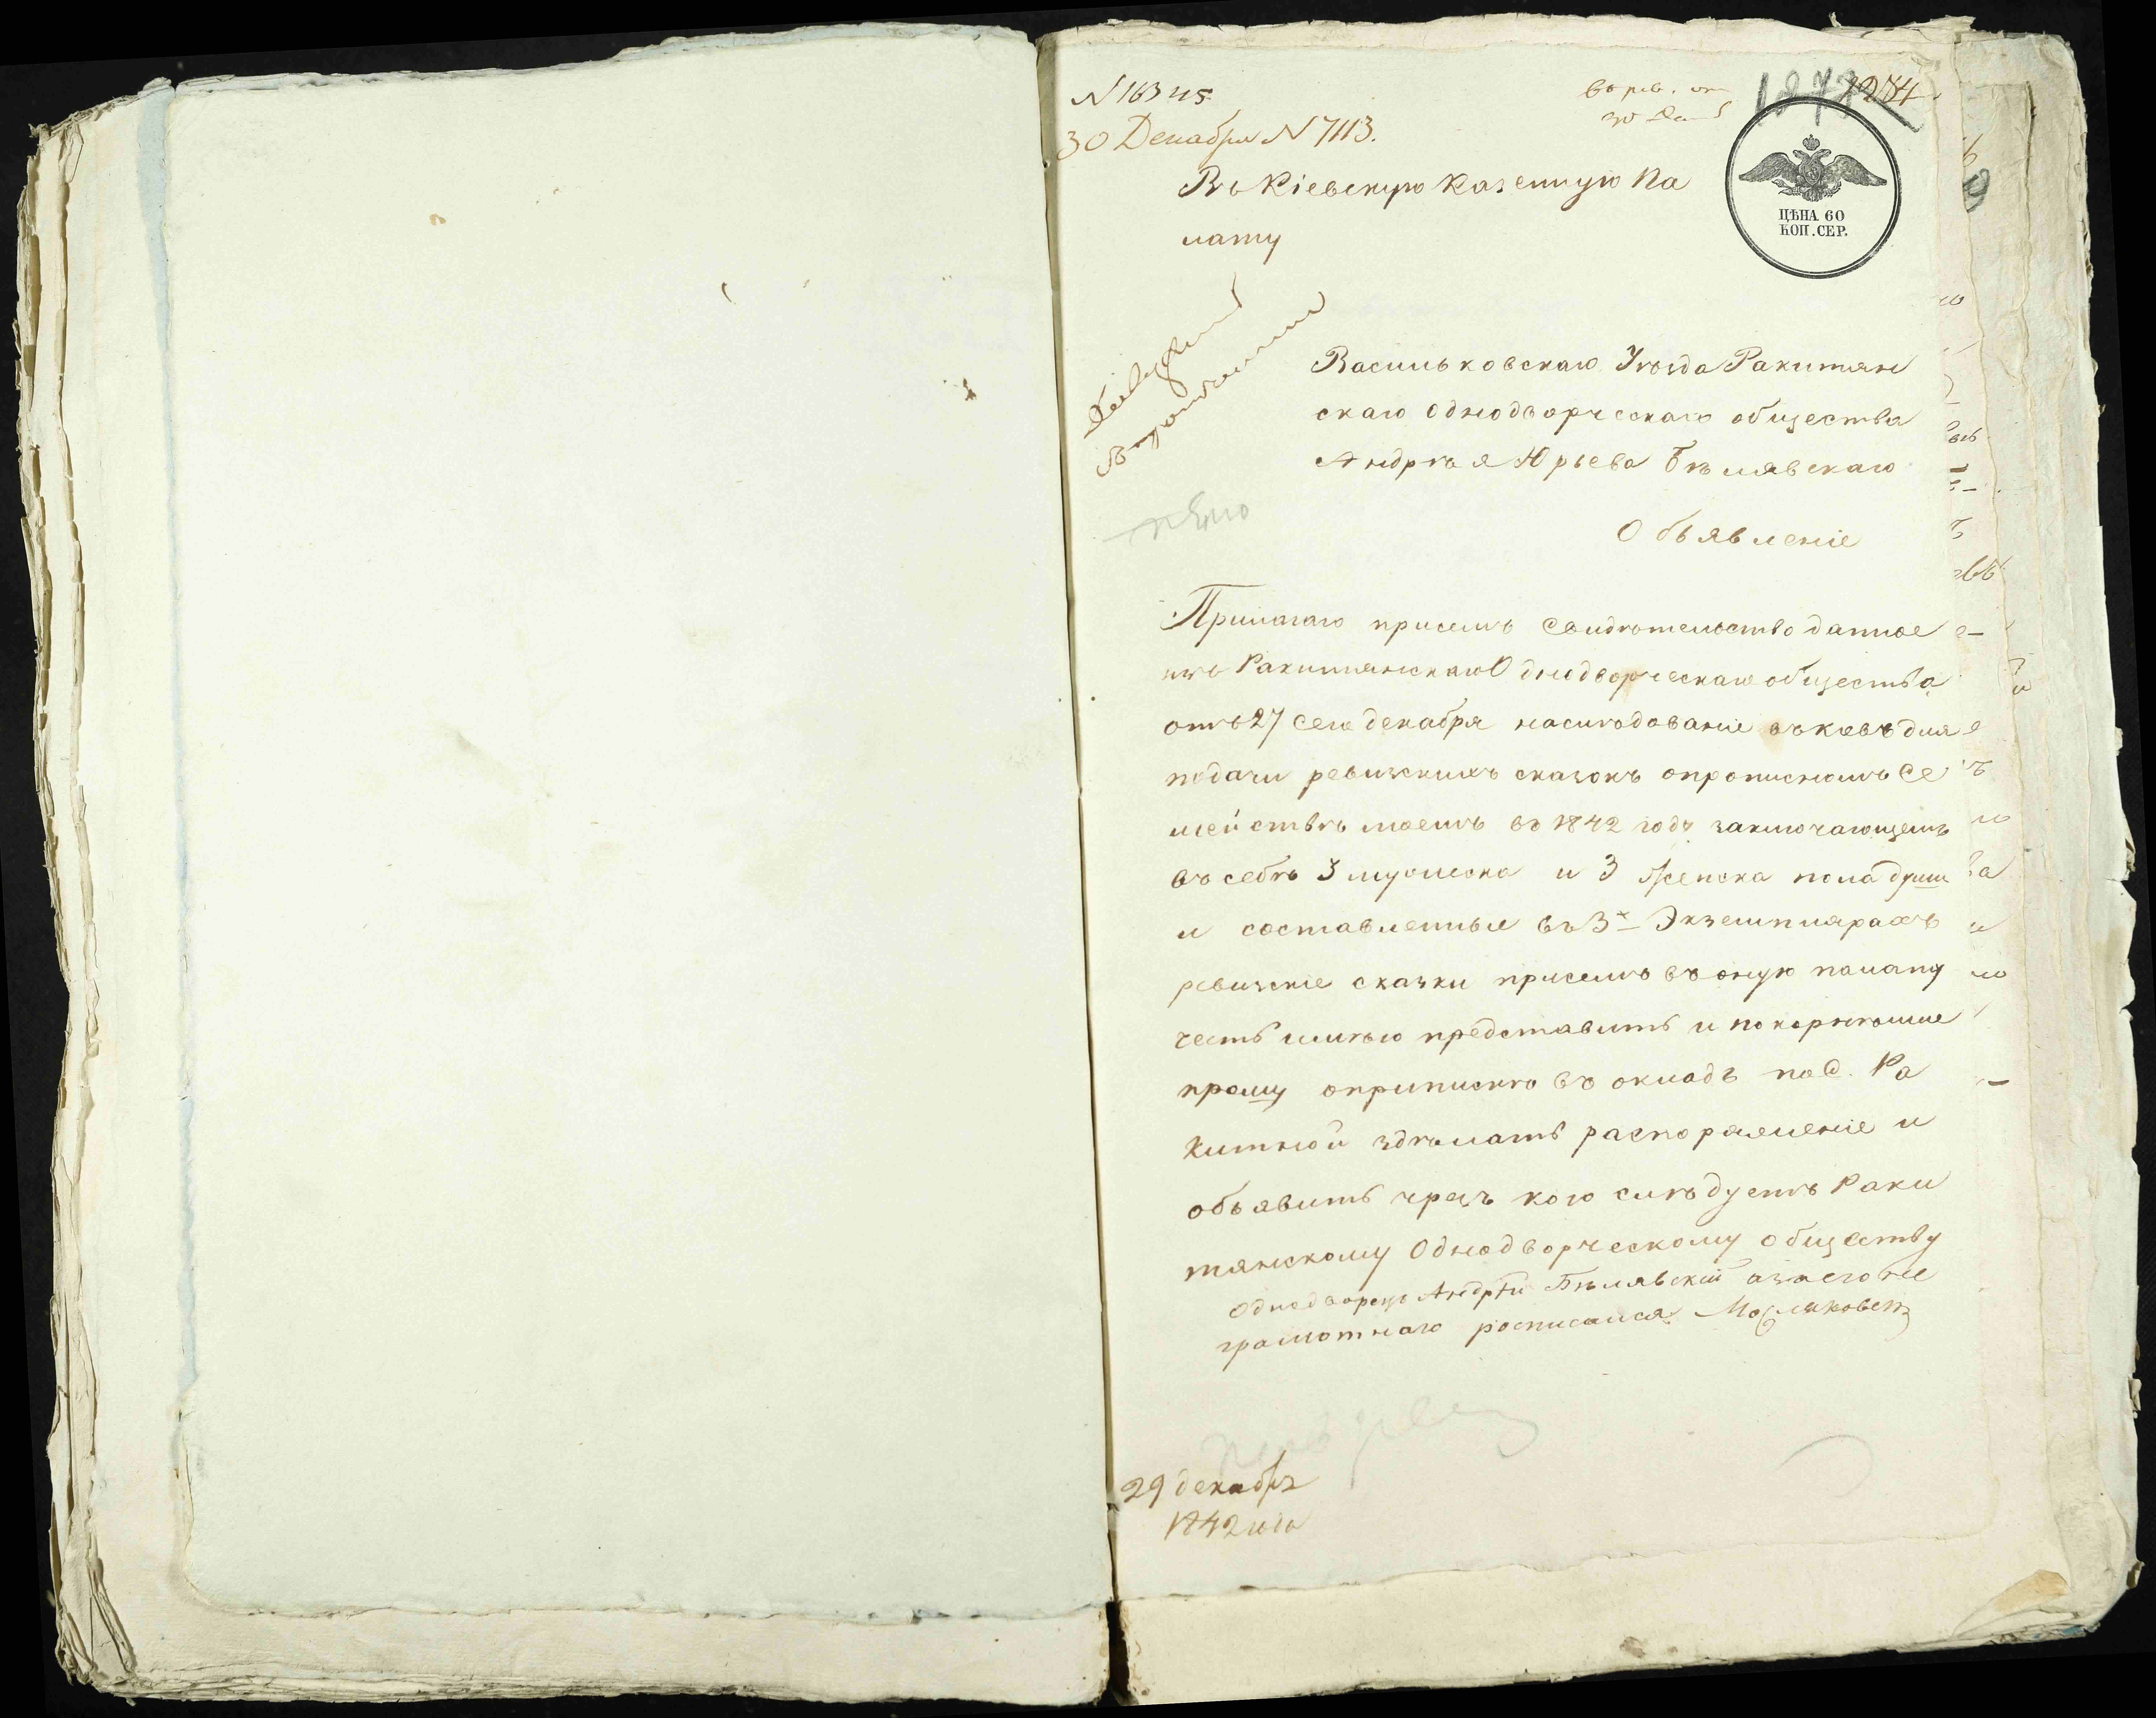 N 16345
30 Декабря N 7113.
1284
ЦѢНА 60
КОП. СЕР.
Въ Кіевскую Казенную Па
лату
Васильковскаго Уѣзда Ракитян
скаго Однодворческаго общества
Андрѣя Юрьева Бѣлявскаго
Объявленіе
Прилагаю присемъ свидѣтельство данное
изъ Ракитянскаго Однодворческаго общества
отъ 27 сего декабря наслѣдованіе въ Кіевъ для
подачи ревизскихъ сказокъ опрописномъ Се
мействѣ моемъ въ 1842 году заключающемъ
въ себѣ 3 мужеска и 3 женска пола души
и составленные въ 3х Экземплярахъ
ревизскіе сказки присемъ въ оную палату
честь имѣю представить и покорнѣйше
прошу оприпискѣ въ окладъ по С. Ра
китной здѣлать распоряженіе и
объявить чрезъ кого слѣдуетъ Раки
тянскому Однодворческому обществу
Однодворецъ Андрѣй Бѣлявскій азаего не
грамотнаго росписался
29 декабря
1842 года